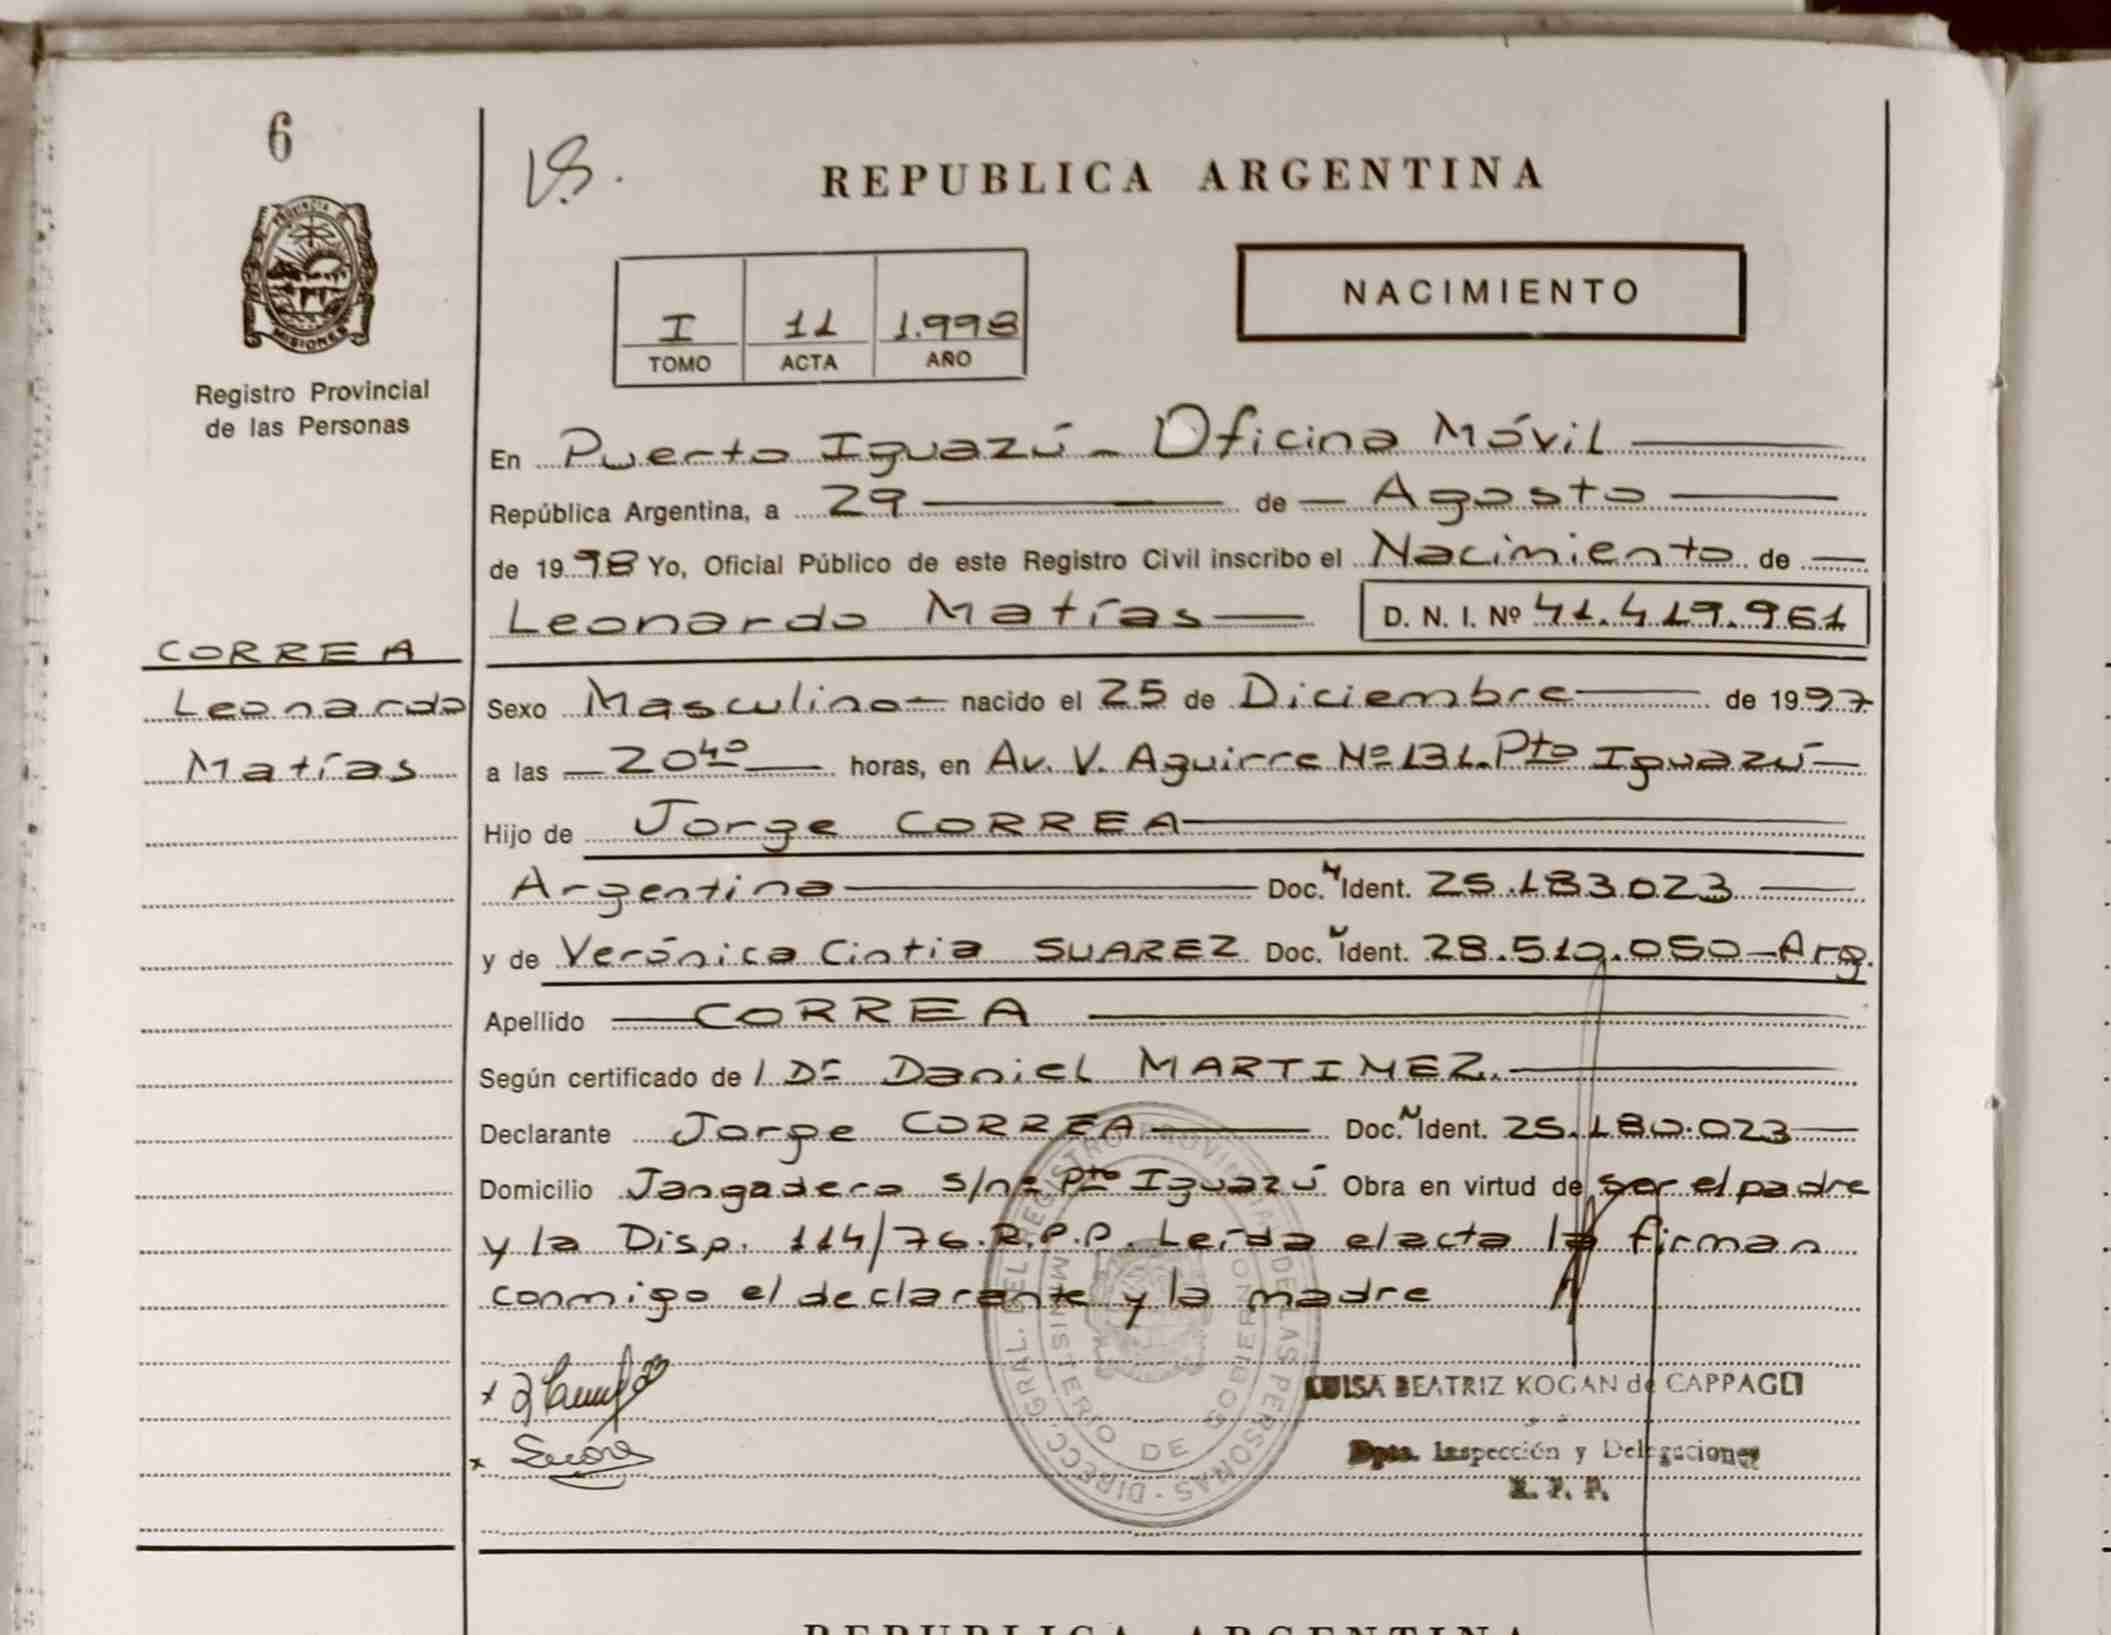 6
VS.
REPUBLICA ARGENTINA
PROVINCIA DE
MISIONES
Registro Provincial
de las Personas
I 11 1.998
TOMO ACTA AÑO
NACIMIENTO
En Puerto Iguazú - Oficina Móvil
República Argentina, a 29 de Agosto
de 1998 Yo, Oficial Público de este Registro Civil inscribo el Nacimiento de
Leonardo Matías D. N. I. Nº 41.419.961
CORREA
Leonardo
Matías
Sexo Masculino nacido el 25 de Diciembre de 1997
a las 20 40 horas, en Av. V. Aguirre Nº 131. Pto Iguazú
Hijo de Jorge CORREA
Argentina Doc. N Ident. 25.183.023
y de Verónica Cintia SUAREZ Doc. N Ident. 28.519.050 - Arg.
Apellido CORREA
Según certificado de l Dr Daniel MARTINEZ.
Declarante Jorge CORREA Doc. N Ident. 25.180.023
Domicilio Jangadero s/nº Pto Iguazú Obra en virtud de ser el padre
y la Disp. 114/76. R.P.P. Leída el acta la firman
conmigo el declarante y la madre
DIRECC. GRAL. DEL REGISTRO PROVINCIAL DE LAS PERSONAS
MINISTERIO DE GOBIERNO
LUISA BEATRIZ KOGAN de CAPPAGLI
Dpto. Inspección y Delegaciones
R. P. P.
REPUBLICA ARGENTINA